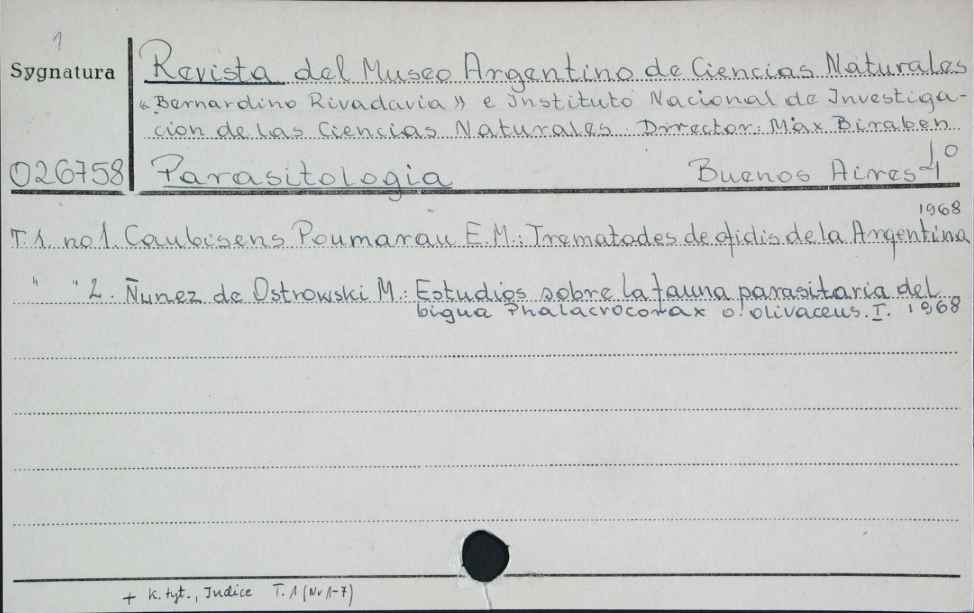 1
Sygnatura
Revista del Museo Argentino de Ciencias Naturales
«Bernardino Rivadavia» e Instituto Nacional de Investiga-
cion de las Ciencias Naturales Director: Max Biraben
026758 Parasitologia Buenos Aires 4°
1968
T.1. no 1. Caubisens Poumarau E.M.: Trematodes de ofidis de la Argentina
" " 2. Ñunez de Ostrowski M.: Estudios sobre la fauna parasitaria del
bigua Phalacrocorax o. olivaceus. I. 1968
+ K. tyt., Indice T. 1 (Nr 1-7)